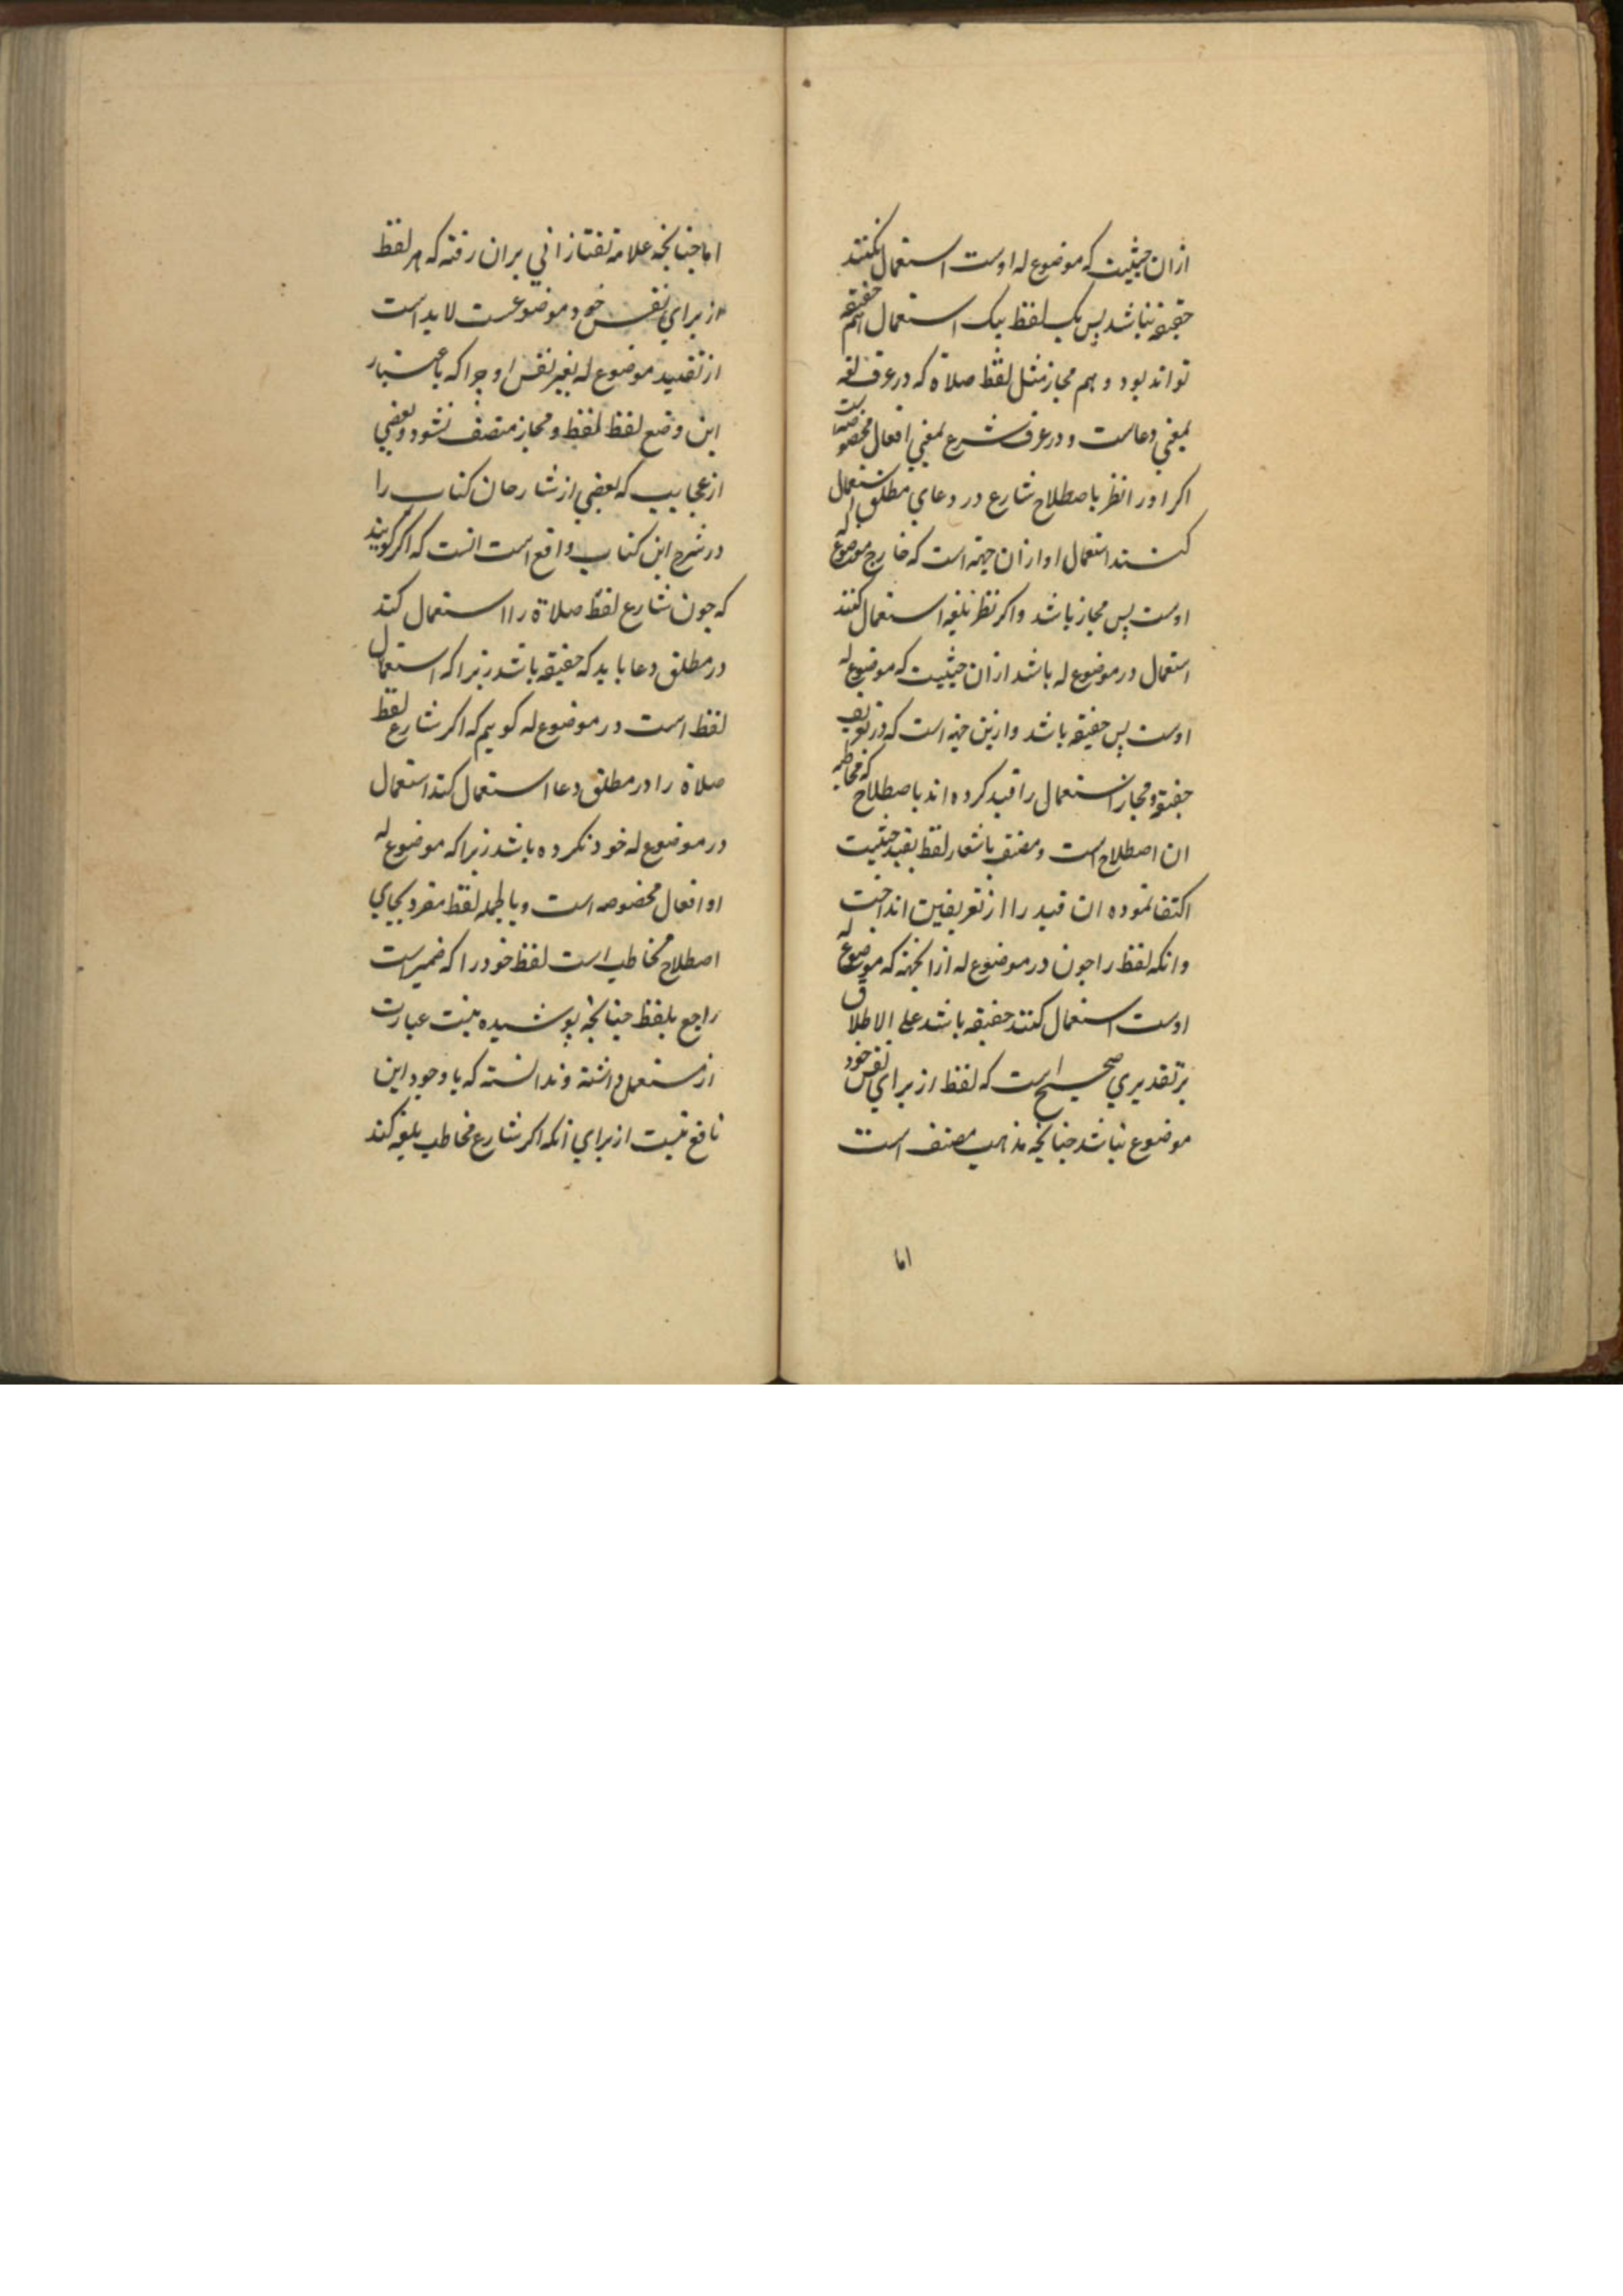 ازان حیثیت که موضوع له اوست استعمال نکنند
حقیقة نباشد پس یک لفظ بیک استعمال هم حقیقة
تواند بود و هم مجاز مثل لفظ صلاة که در عرف لغة
بمعنی دعاست و در عرف شرع بمعنی افعال مخصوصه است
اکر او را نظر باصطلاح شارع در دعای مطلق استعمال
کنند استعمال او ازان جهة است که خارج موضوع له
اوست پس مجاز باشد و اکر نظر بلغة استعمال کنند
استعمال در موضوع له باشد ازان حیثیت که موضوع له
اوست پس حقیقة باشد و ازین جهة است که در تعریف
حقیقة و مجاز استعمال را قید کرده اند باصطلاح که مخاطبه
ان اصطلاح است و مصنف باشعار لفظ بقید حیثیت
اکتفا نموده ان قید را از تعریفین انداخت
و انکه لفظ را چون در موضوع له ازانجهة که موضوع له
اوست استعمال کنند حقیقة باشد علی الاطلاق
بر تقدیری صحیح است که لفظ از برای نفس خود
موضوع نباشد چنانچه مذهب مصنف است
اما
اما چنانچه علامه تفتازانی بران رفته که هر لفظ
از برای نفس خود موضوعست لابد است
از تقیید موضوع له بغیر نفس او چرا که باعتبار
این وضع لفظ و مجاز متصف نشود و بعضی
از عجایب که بعضی از شارحان کتاب را
در شرح این کتاب واقع است انست که اکر کویند
که چون شارع لفظ صلاة را استعمال کند
در مطلق دعا باید که حقیقة باشد زیرا که استعمال
لفظ است در موضوع له کوییم که اکر شارع لفظ
صلاة را در مطلق دعا استعمال کند استعمال
در موضوع له خود نکرده باشد زیرا که موضوع له
او افعال مخصوصه است و بالجمله لفظ مفرد بجای
اصطلاح مخاطب است لفظ خود را که ضمیر است
راجع بلفظ چنانچه پوشیده نیست عبارت
از مستعمل داشته و ندانسته که با وجود این
نافع نیست از برای انکه اکر شارع مخاطب بلغة کند